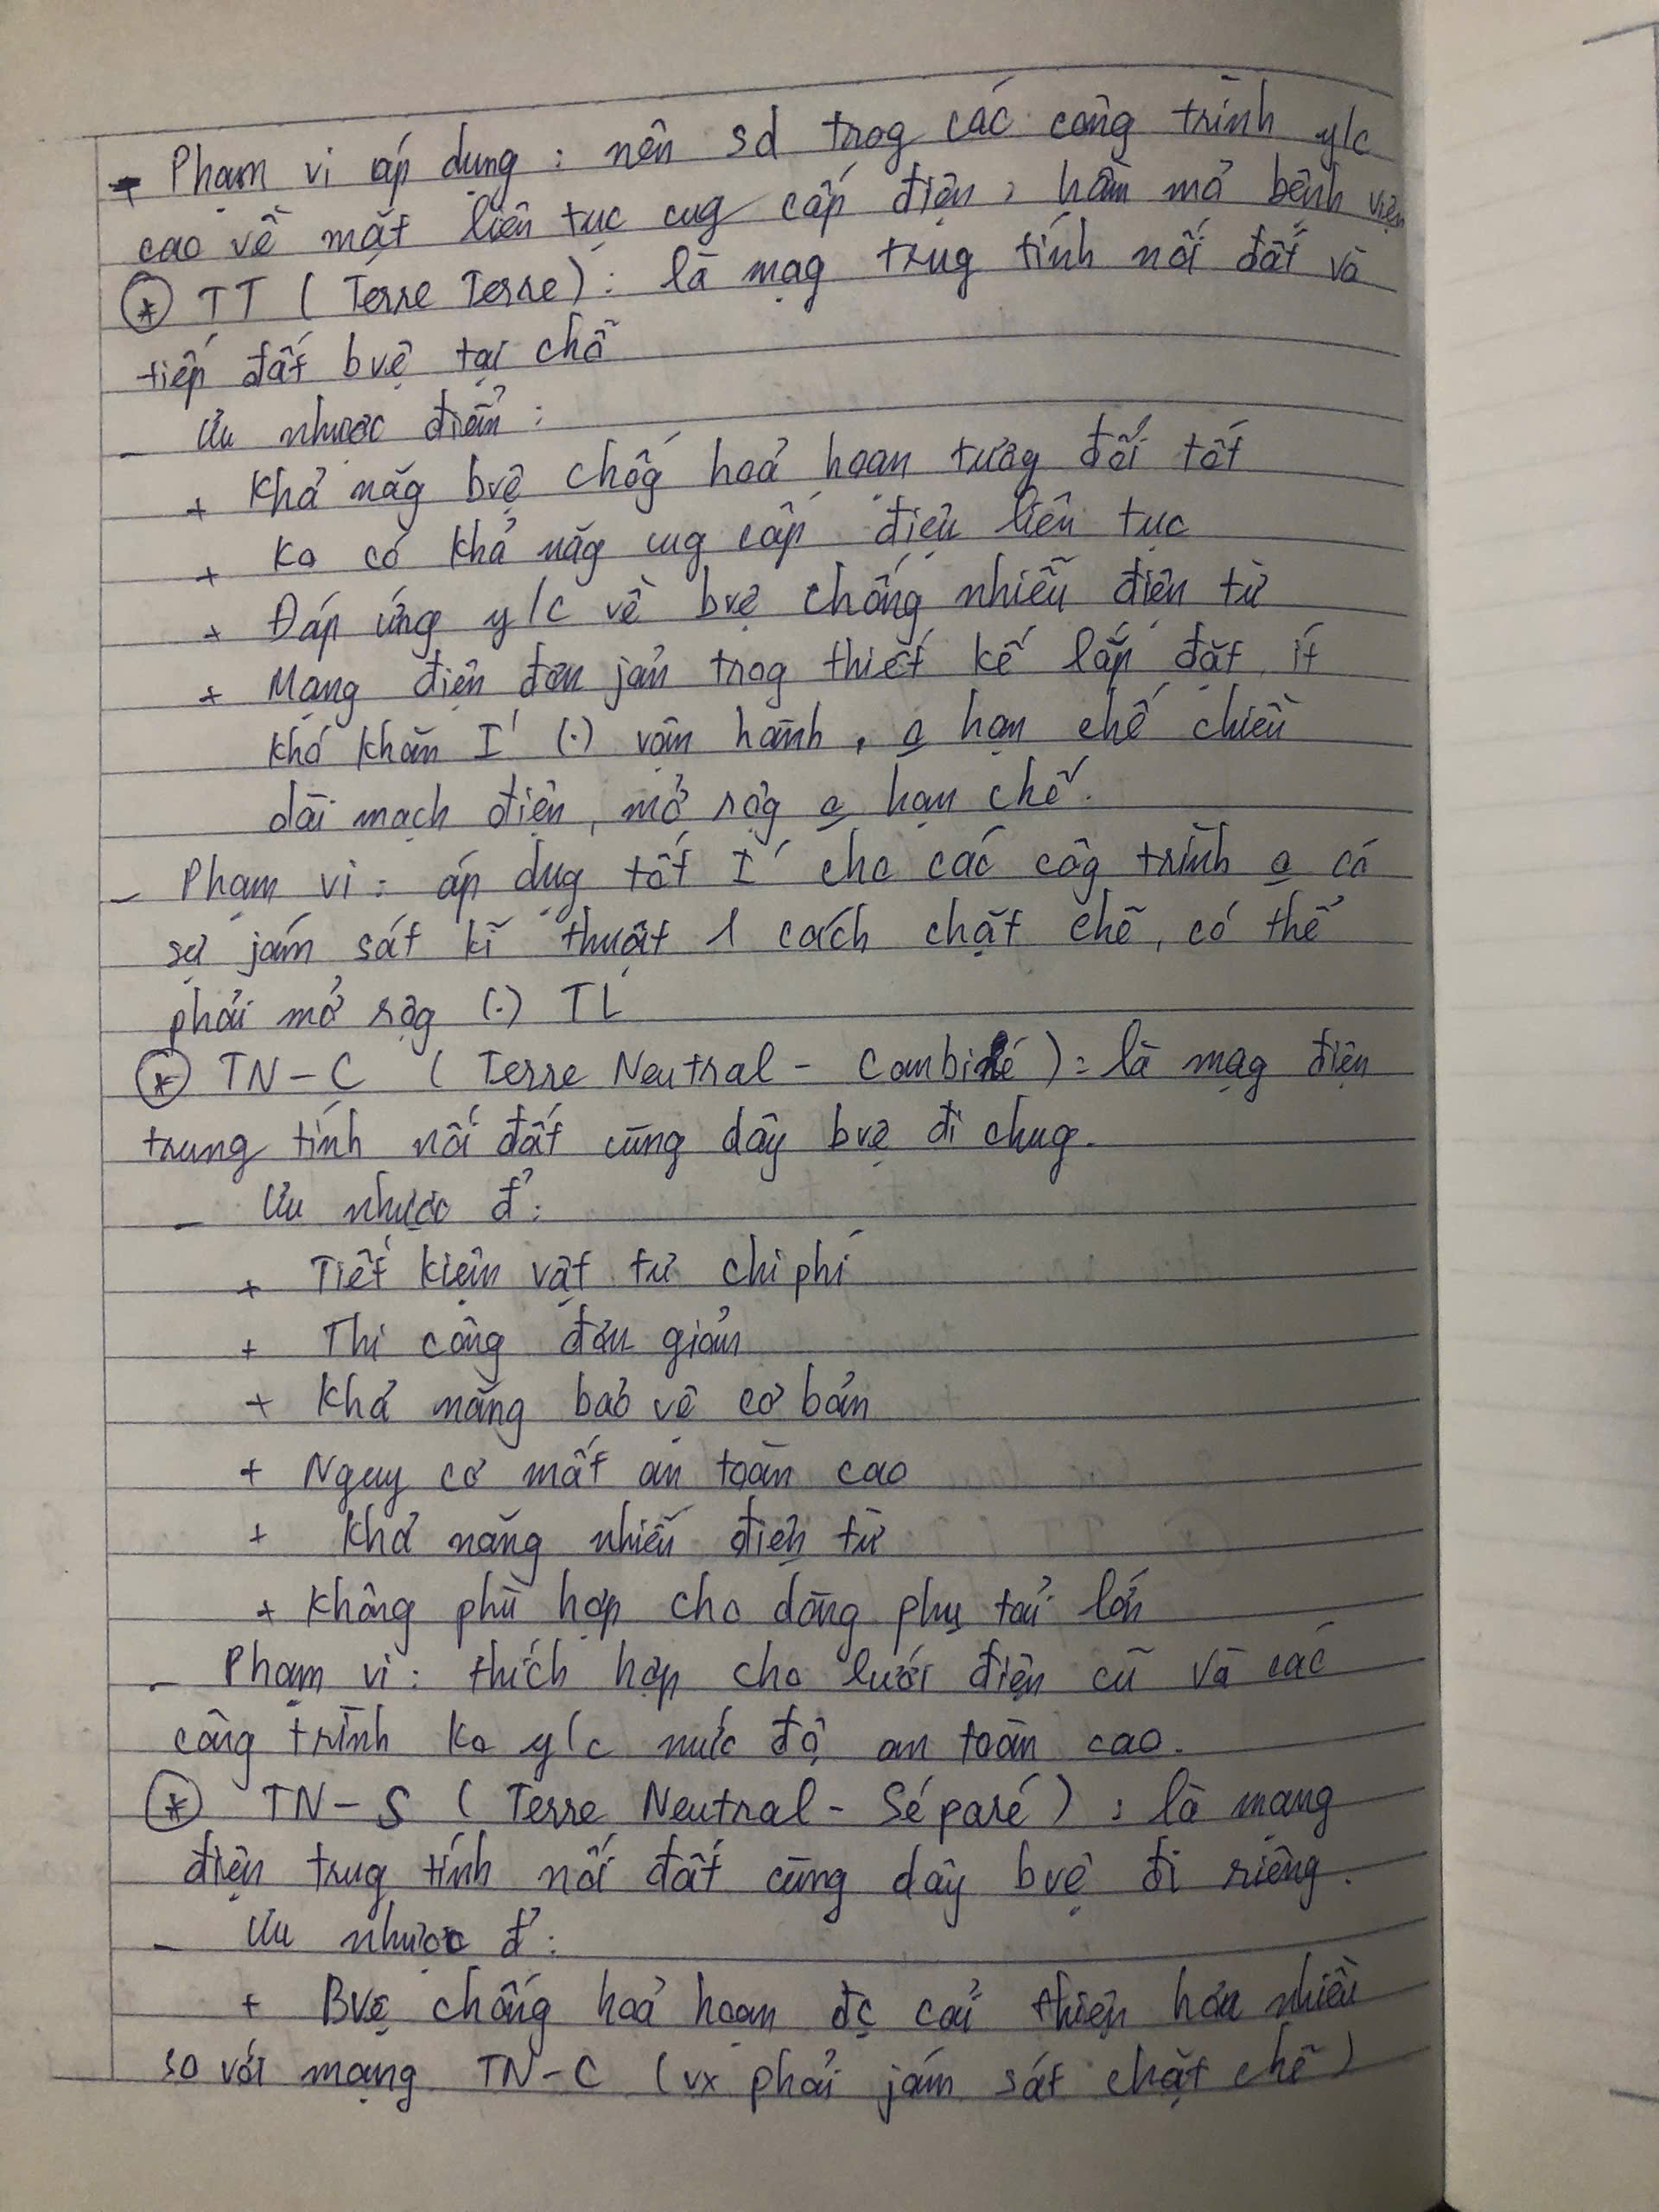 - Phạm vi áp dụng : nên sd trog các công trình y/c
cao về mặt liên tục cug cấp điện : hầm mỏ bệnh viện
* TT ( Terre Terre ) : là mạg trug tính nối đất và
tiếp đất bvệ tại chỗ
- Ưu nhược điểm :
+ Khả năg bvệ chốg hoả hoạn tươg đối tốt
+ Ko có khả năg cug cấp điện liên tục
+ Đáp ứng y/c về bvệ chống nhiễu điện từ
+ Mạng điện đơn jản trog thiết kế lắp đặt, ít
khó khăn I' (.) vận hành, o hạn chế chiều
dài mạch điện, mở rộg o hạn chế.
- Phạm vi : áp dụg tốt I' cho các côg trình o có
sự jám sát kĩ thuật 1 cách chặt chẽ, có thể
phải mở rộg (.) TL
* TN - C ( Terre Neutral - Combiné ) : là mạg điện
trung tính nối đất cùng dây bvệ đi chug.
- Ưu nhược đ' :
+ Tiết kiệm vật tư chi phí
+ Thi công đơn giản
+ Khả năng bảo vệ cơ bản
+ Nguy cơ mất an toàn cao
+ Khả năng nhiễu điện từ
+ Không phù hợp cho dòng phụ tải lớn
- Phạm vi : thích hợp cho lưới điện cũ và các
công trình ko y/c mức độ an toàn cao.
* TN - S ( Terre Neutral - Séparé ) : là mạng
điện trug tính nối đất cùng dây bvệ đi riêng.
- Ưu nhược đ' :
+ Bvệ chống hoả hoạn đc cải thiện hơn nhiều
so với mạng TN-C (vx phải jám sát chặt chẽ)